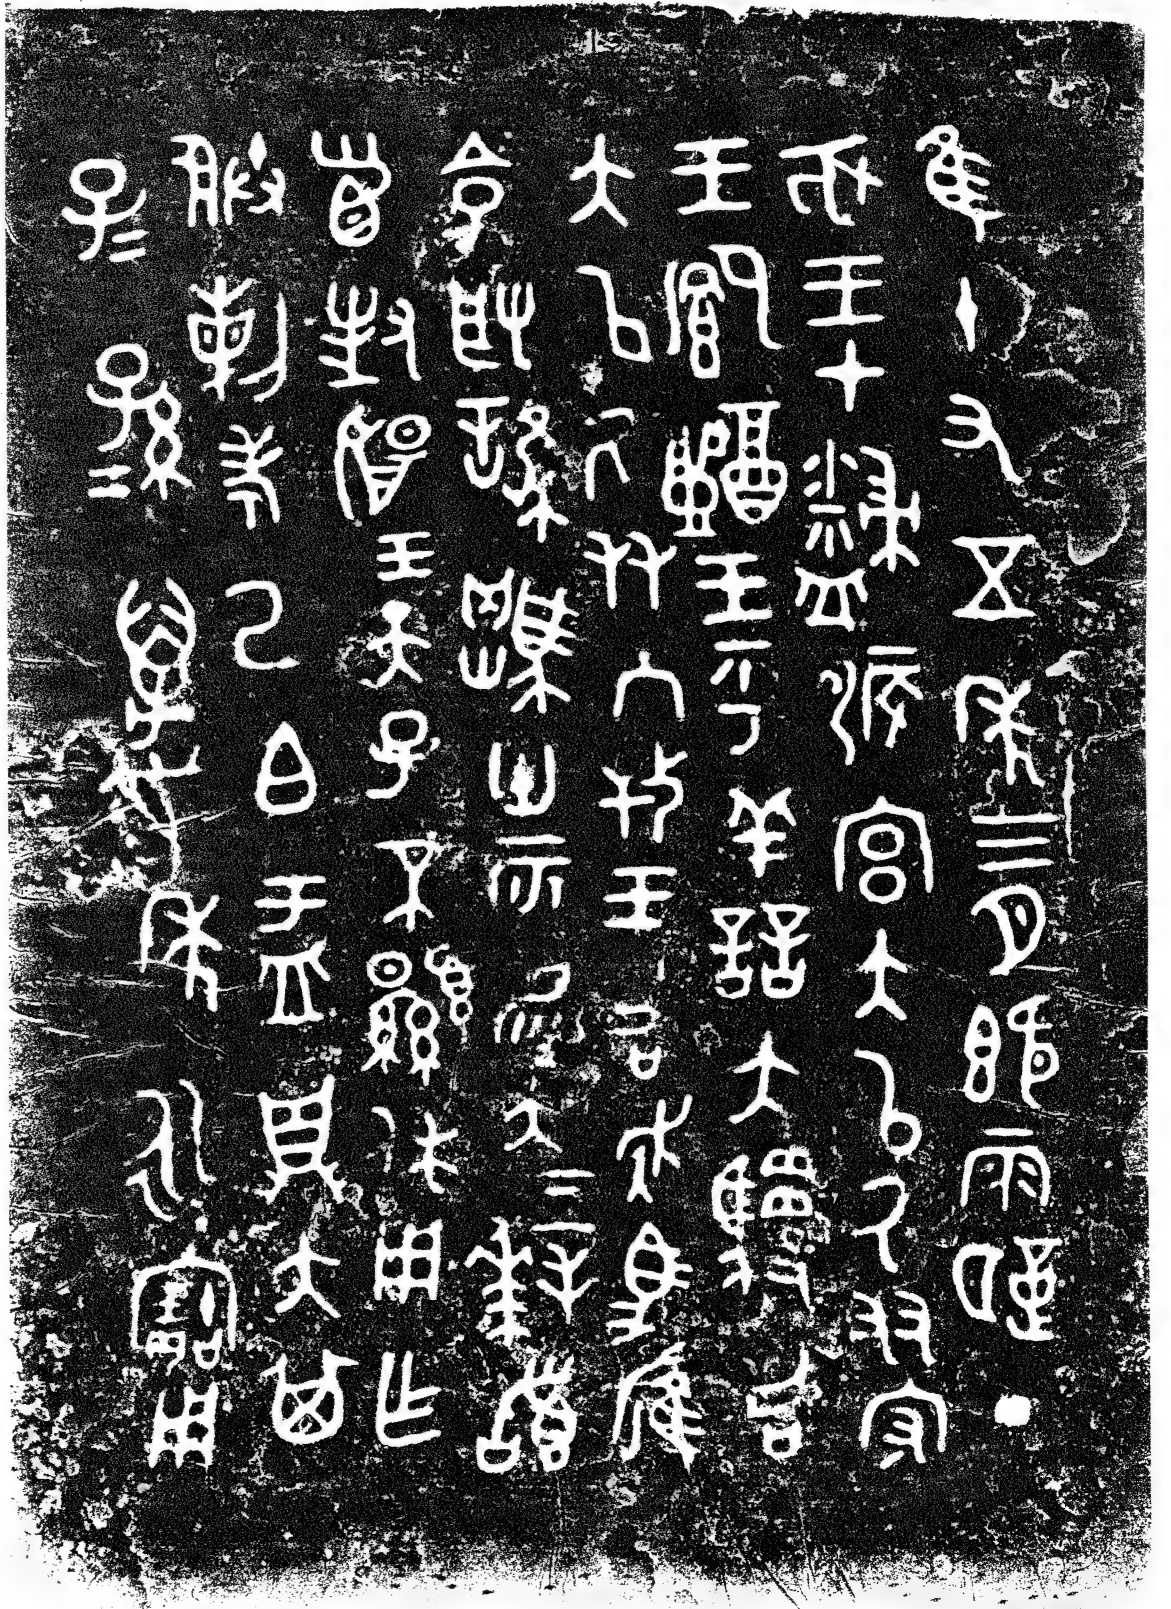 隹十又五年三月既霸丁
亥王才侲宮大以氒友守
王鄉醴王乎善夫騣召
大以氒友入攼王召走馬雁
令取騆卅二匹易大=拜䭫
首對揚王天子不顯休用乍
朕剌考己白盂鼎大其
子=孫=萬年永寶用